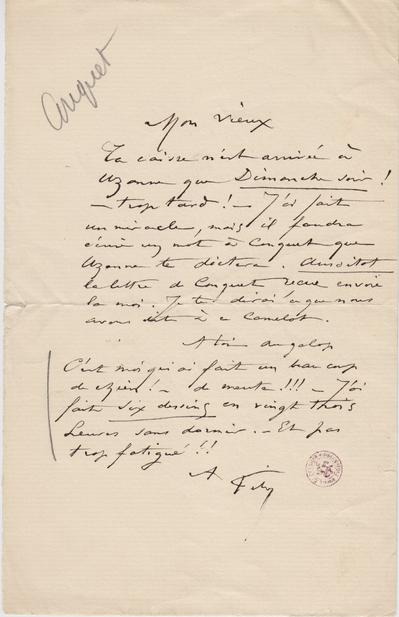 Conquet
Mon Vieux
Ta caisse n'est arrivée à
Uzanne que Dimanche soir !
– trop tard ! – J'ai fait
un miracle, mais il faudra
écrire un mot à Conquet que
Uzanne te dictera. Aussitot
la lettre de Conquet recue envoie
la moi. Je te dirai ce que nous
avons dit à ce Camelot.
A toi au galop
C'est moi qui ai fait un beau coup
de
J'ai
faits six dessins en vingt trois
heures sans dormir. – Et pas
trop fatigué !!
A